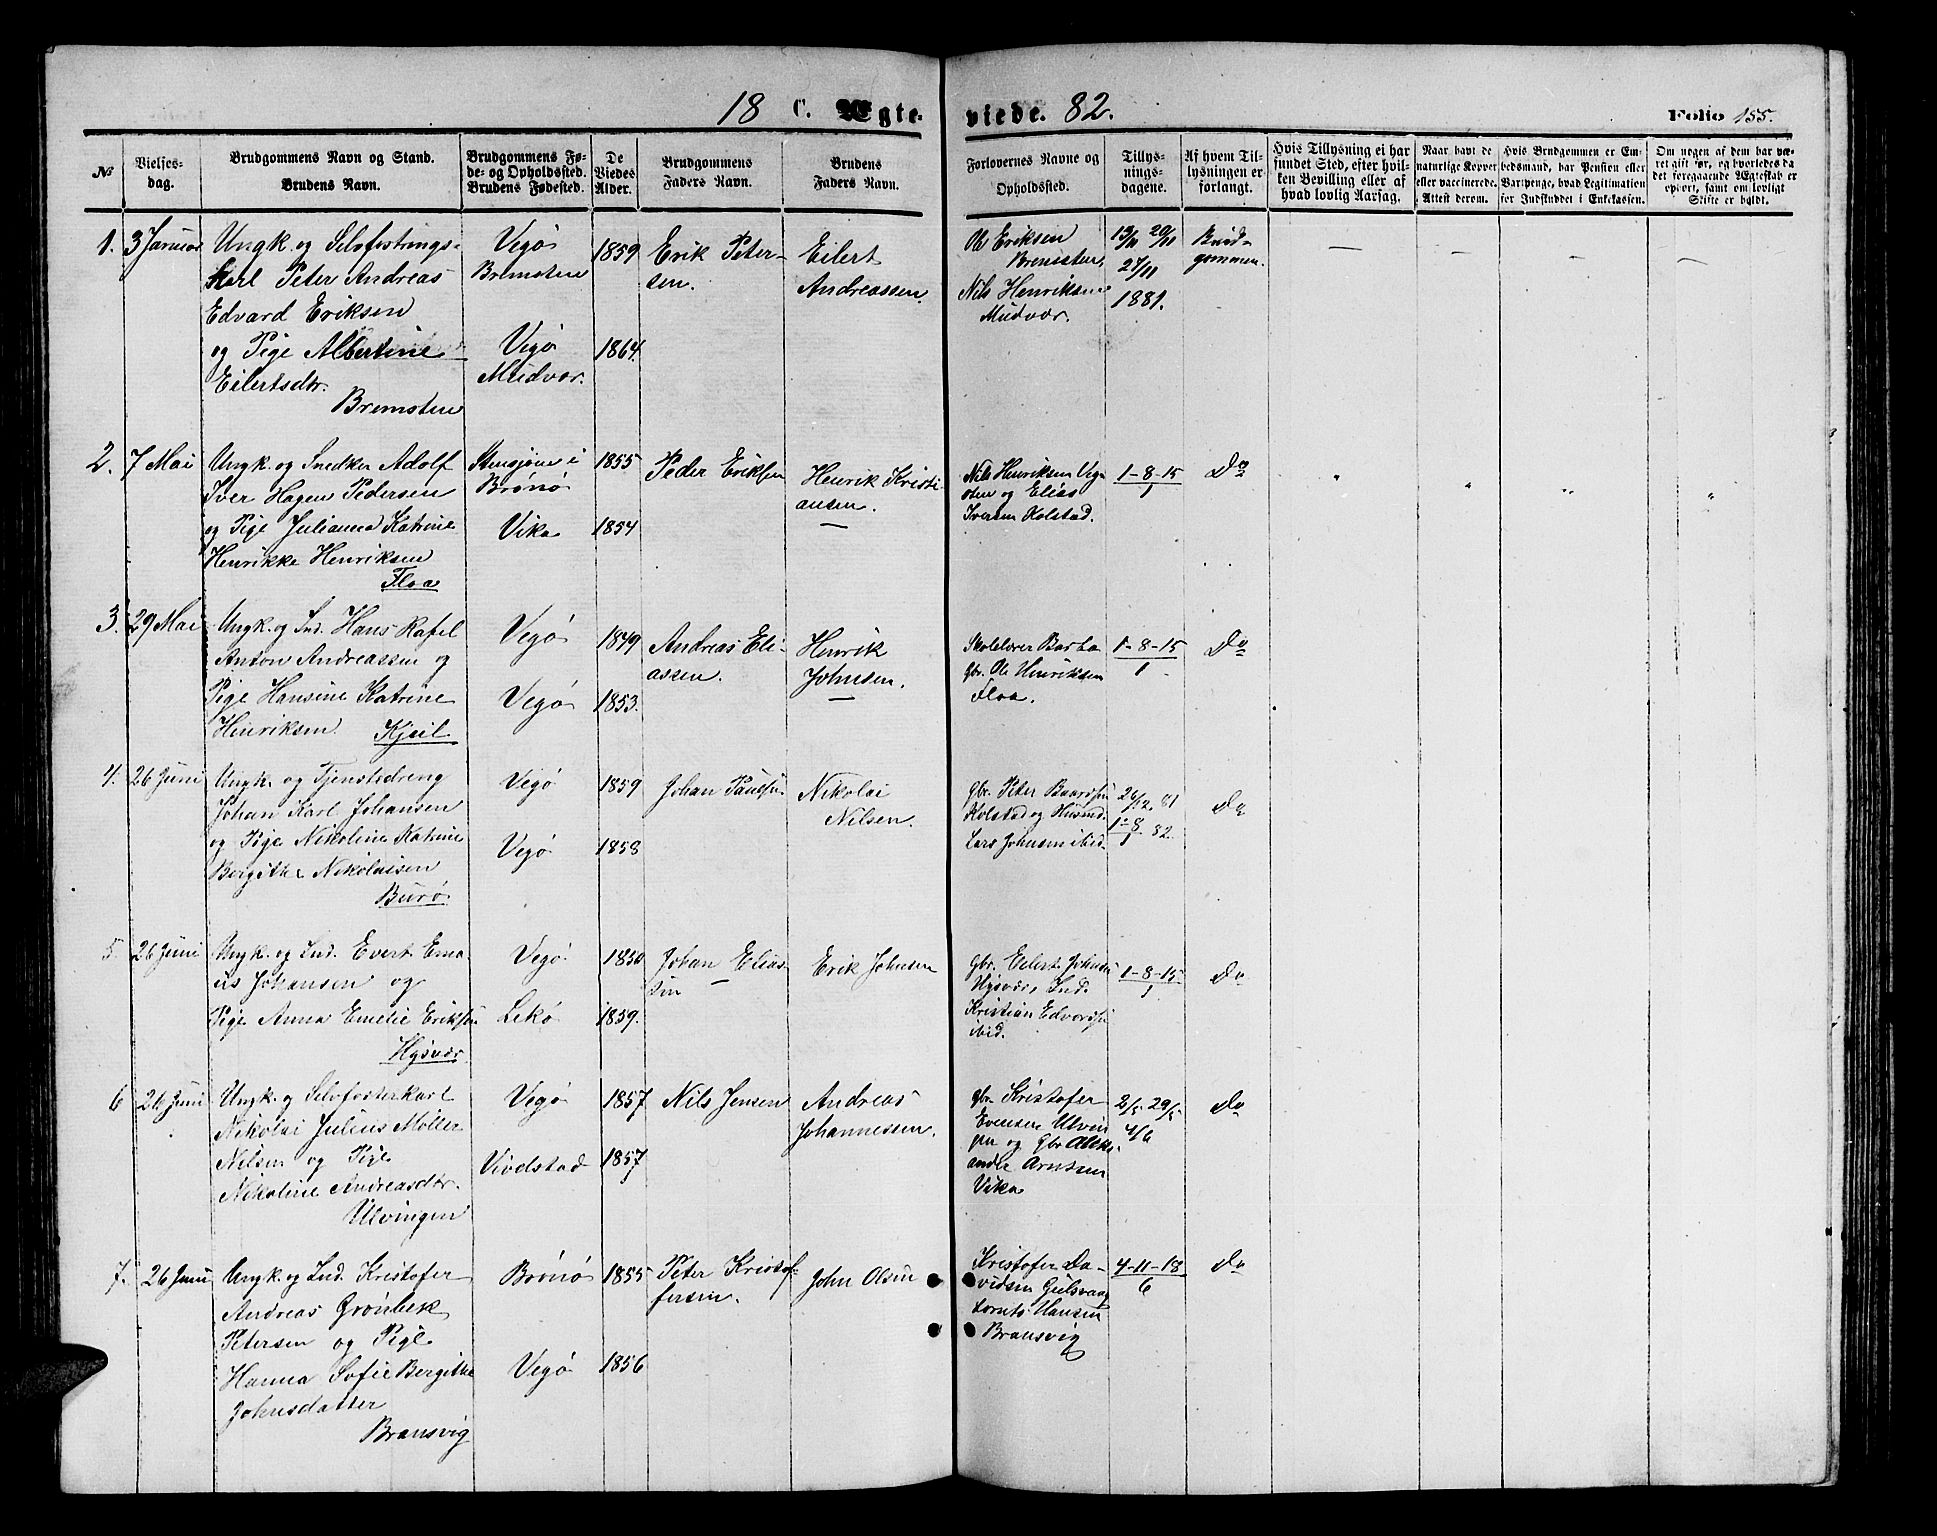 18 C. Ægte- viede. 82. Folio 155.
№ Vielses-dag. Brudgommens Navn og Stand. Brudens Navn. Brudgommens Fø-de- og Opholdssted. Brudens Fødested. De Viedes Alder. Brudgommens Faders Navn. Brudens Faders Navn. Forlovernes Navne og Opholdsted. Tillys-nings-dagene. Af hvem Til-lysningen er forlangt. Hvis Tillysning ei har fundet Sted, efter hvil-ken Bevilling eller af hvad lovlig Aarsag. Naar havt de naturlige Kopper eller vaccinerede. Attest derom. Hvis Brudgommen er Em-bedsmand, har Pension eller Vartpenge, hvad Legitimation for Indskuddet i Enkekassen. Om nogen af dem har væ-ret gift før, og hvorledes da det foregaaende Ægteskab er ophørt, samt om lovligt Skifte er holdt.
1. 3 Januar Ungk. og Selvfostrings- Vegø 1859 Erik Peter- Eilert Ole Eriksen 13/11 20/11 Brud-
karl Peter Andreas Bremsten sen. Andreassen. Bremsten, 27/11 gommen.
Edvard Eriksen Nils Henriksen 1881.
og Pige Albertine Vegø 1864. Mudvær.
Eilertsdtr. Mudvær.
Bremsten
2. 7 Mai Ungk. og Snedker Adolf Stensjøen i 1855 Peder Eriksen Henrik Kristi- Nils Henriksen Veg- 1-8-15 Do
Iver Hagen Pedersen Brønø ansen. sten og Elias 1
og Pige Julianna Katrine Vika 1854 Iversen Kolstad.
Henrikke Henriksen
Floa
3. 29 Mai Ungk. og Ind. Hans Rafel Vegø 1849 Andreas Eli- Henrik Skolelærer Barta 1-8-15 Do
Anton Andreassen og assen. Johnsen. gbr. Ole Henriksen 1
Pige Hansine Katrine Vegø 1853. Floa.
Henriksen Kjeil
4. 26 Juni Ungk. og Tjenestedreng Vegø 1859 Johan Paulsen Nikolai gbr. Peter Baardsen 26/12 81 Do
Johan Karl Johansen Nilsen. Kolstad og Husmd. 1-8 82.
og Pige Nikoline Katrine Vegø 1858 Lars Johnsen ibid. 1
Bergithe Nikolaisen
Burø
5. 26 Juni Ungk. og Ind. Evert Ema- Vegø 1850 Johan Elias- Erik Johnsen gbr. Eilert Johnsen 1-8-15 Do
us Johansen og sen Hysvær, Ind. 1
Pige Anna Emelie Eriksen Lekø 1859. Kristian Edvardsen
Hysvær ibid.
6 26 Juni Ungk. og Selvfosterkarl Vegø 1857 Nils Jensen Andreas gbr. Kristofer 2/5 29/5 Do
Nikolai Julius Möller Johannessen. Evensen Ulvin- 4/6
Nilsen og Pige Vivdstad 1857 gen og Gbr Aleks-
Nikoline Andreasdtr. ander Arntsen
Ulvingen Vika
7. 26 Juni Ungk. og Ind. Kristofer Brønø 1855 Peter Kristof- John Olsen Kristofer Da- 4-11-18 Do
Andreas Grønbek fersen. vidsen Gulsvaag 6
Petersen og Pige Lornts Hansen
Hanna Sofie Bergitha Vegø 1856 Bransvig
Johnsdatter
Bransvig